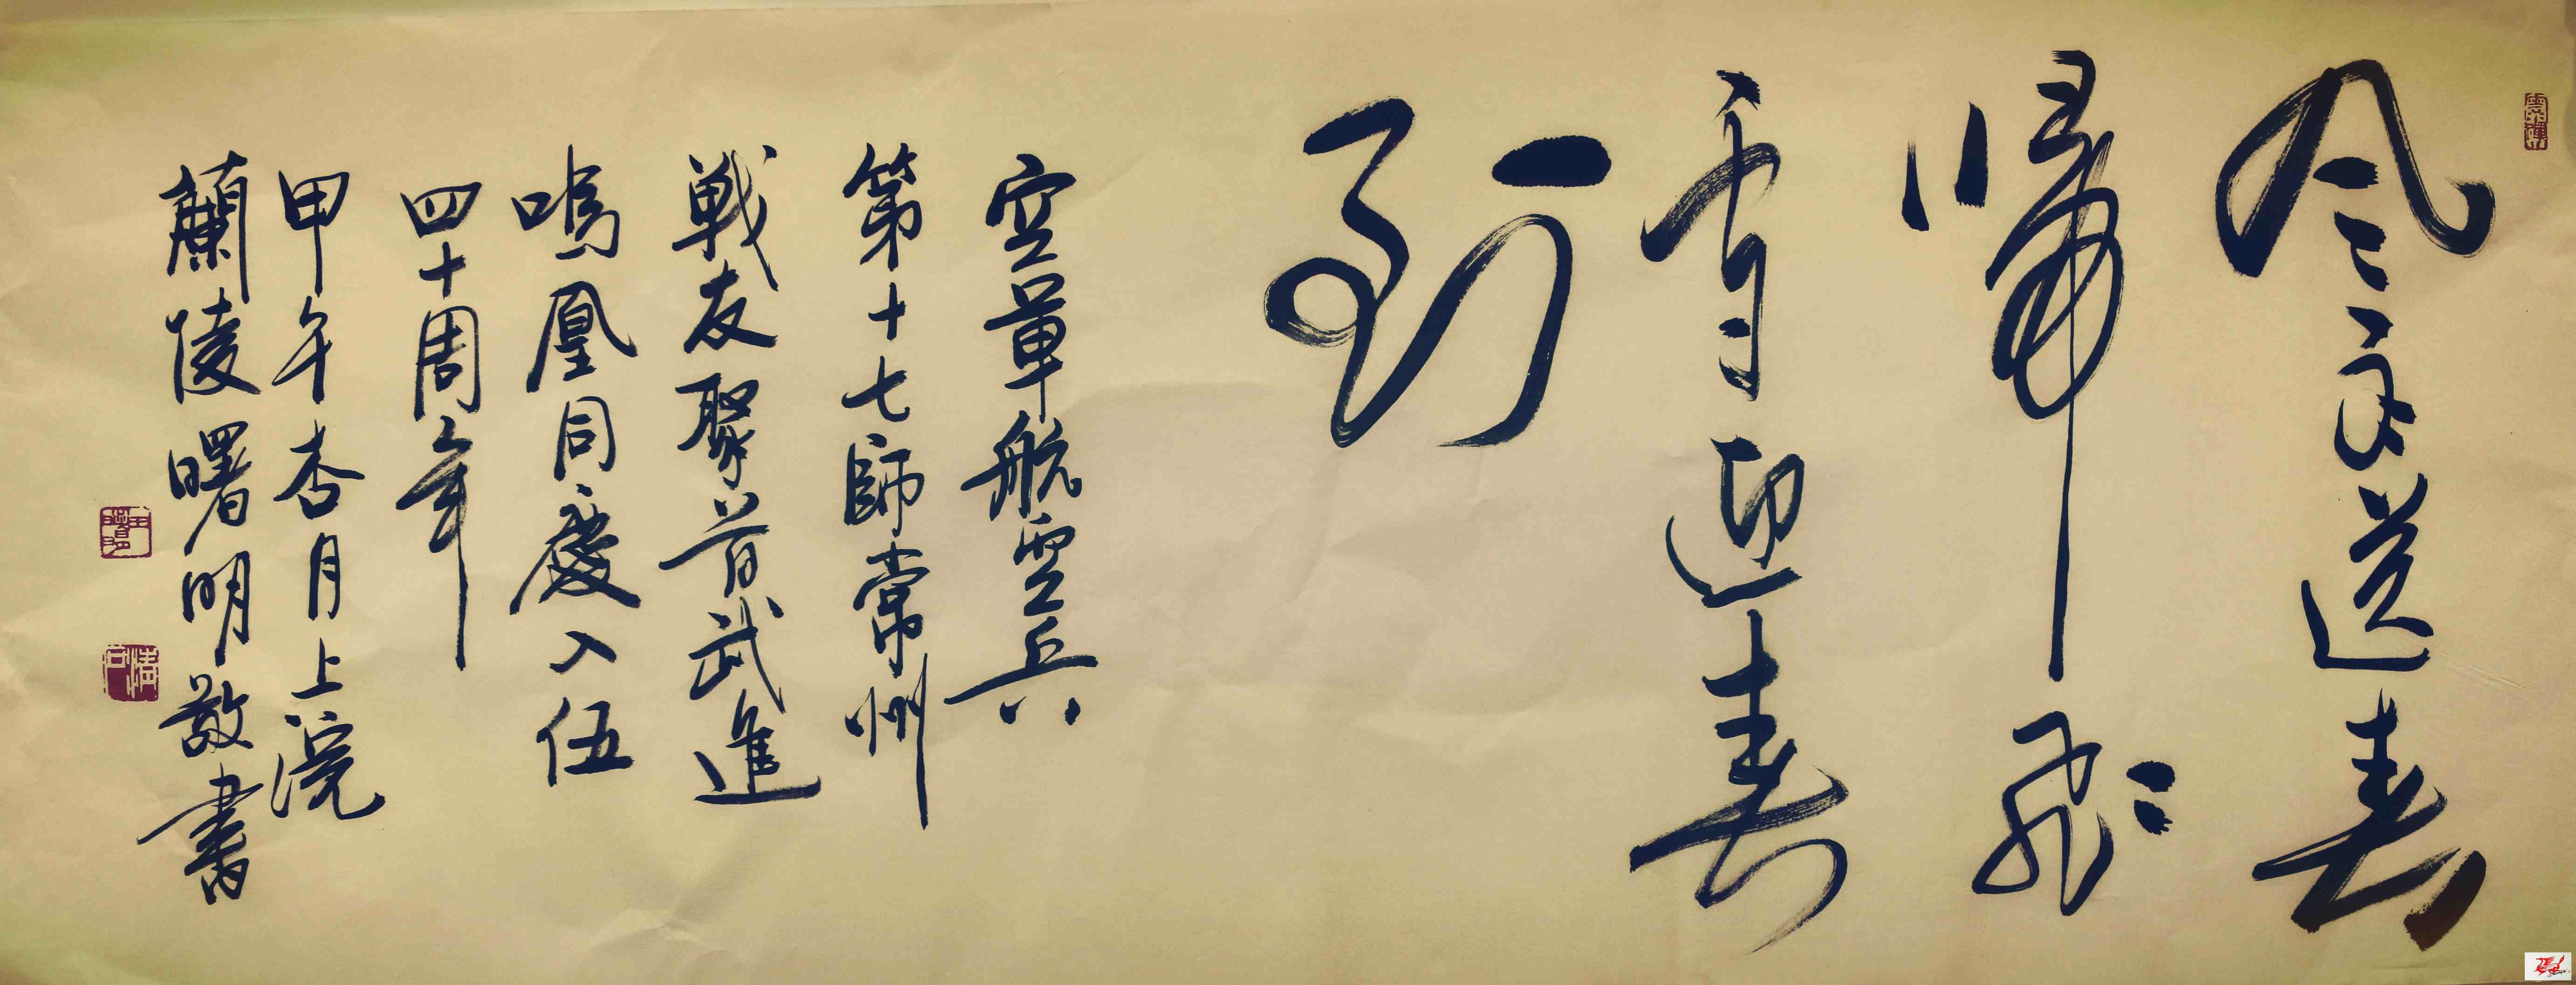 風雨送春
歸飛
雪迎春
到
空軍航空兵
第十七師常州
戰友聚首武進
鳴凰同慶入伍
四十周年
甲午杏月上浣
蘭陵曙明敬書